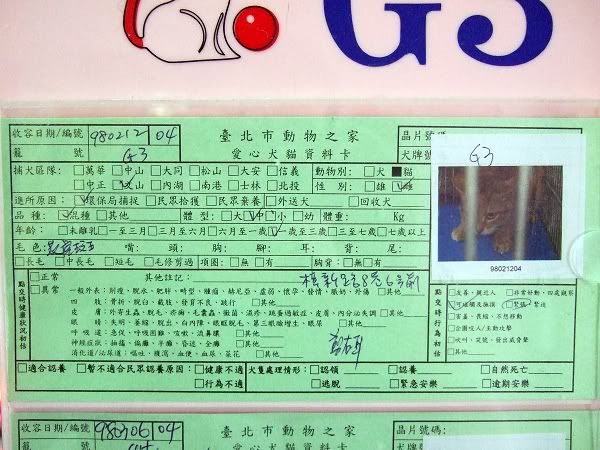 G3
收容日期/編號 980212 04 臺北市動物之家 晶片號碼
籠號 G3 愛心犬貓資料卡 犬牌號 G3
捕犬區隊: □萬華 □中山 □大同 □松山 □大安 □信義 動物別: □犬 ■貓
□中正 □文山 □內湖 □南港 □士林 □北投 性別: □雄 □雌
進所原因: □環保局捕捉 □民眾拾獲 □民眾棄養 □外送犬 □回收犬
品種: □混種 □其他 體型: □大 □中 □小 □幼 體重: Kg
年齡: □未離乳 □一至三月 □三月至六月 □六月至一歲 □一歲至三歲 □三至七歲 □七歲以上
毛色: 嘴: 頭: 胸: 腳: 耳: 背: 尾:
□長毛 □中長毛 □短毛 □毛修剪過 項圈: □無 □有 胸背: □無 □有
98021204
點交時健康狀況初估
□正常 其他註記:
□異常 一般外表: 削瘦、脫水、肥胖、畸型、腫瘤、赫尼亞、虛弱、懷孕、發情、眼幼、外傷 □其他
四肢: 骨折、脫臼、截肢、發育不良、跛行 □其他
皮膚: 外寄生蟲、脫毛、疥癬、毛囊蟲、黴菌、濕疹、跳蚤過敏症、皮膚、內分泌失調 □其他
眼睛: 失明、萎縮、脫出、白內障、眼瞼脫毛、第三眼瞼增生、眼屎 □其他
呼吸道: 急促、呼吸困難、咳嗽、流鼻膿 □其他
神經症狀: 抽搐、偏癱、半癱、昏迷、全癱 □其他
消化道/泌尿道: 嘔吐、腹瀉、血便、血尿、茶花 □其他
點交時行為初估
□友善、親近人 □非常好動、四處觀察
□可接觸及撫摸 □緊張、緊迫
□害羞、畏縮、不想移動
□企圖咬人/主動攻擊
□吠叫、哭號、發出威脅聲
□其他
□適合認養 □暫不適合民眾認養原因: □健康不適 犬隻處理情形: □認領 □認養 □自然死亡
□行為不適 □逃脫 □緊急安樂 □逾期安樂
收容日期/編號 980306 04 臺北市動物之家 晶片號碼:
籠號 愛心犬貓資料卡 犬牌號